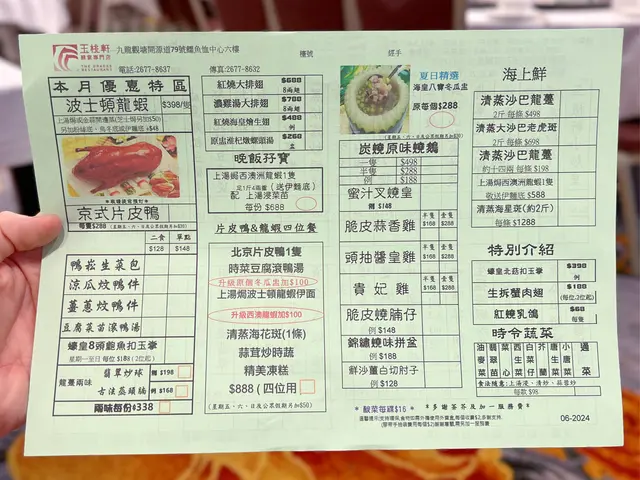 玉桂軒
THE COFFEE RESTAURANT
九龍觀塘開源道79號鱷魚恤中心六樓
檯號
經手
電話:2677-8637
傳真:2677-8632
本月優惠特區
波士頓龍蝦 $398/隻
另加粉絲底、魚手底或伊麵底 +$48
京式片皮鴨
每隻$288 (星期五、六、日及公眾假期另加$20)
二食 單點
$128 $148
鴨崧生菜包
涼瓜炆鴨件
薑蔥炆鴨件
豆腐菜苗滾鴨湯
蠔皇8頭鮑魚扣玉掌
星期一至日 每位$188(2位起)
龍躉兩味
翡翠炒球 例$198
古法蒸頭腩 例$168
兩味每份$338
紅燒大排翅 $688 8兩翅
濃雞湯大排翅 $788 8兩翅
紅燒海皇燴生翅 $488 例
原盅淮杞燉螺頭湯 $268 盅
晚飯孖寶
上湯焗西澳洲龍蝦1隻
足1斤4兩重(送伊麵底)
配 上湯浸菜苗
每份 $688
片皮鴨&龍蝦四位餐
北京片皮鴨1隻
時菜豆腐滾鴨湯
升級原個冬瓜盅加$100
上湯焗波士頓龍蝦伊面
升級西澳龍蝦加$100
清蒸海花斑(1條)
蒜茸炒時蔬
精美凍糕
$888 (四位用)
(星期五、六、日及公眾假期另加$50)
夏日精選
海皇八寶冬瓜盅
原每個$288
(星期五、六、日及公眾假期另加$20)
炭燒原味燒鵝
一隻 $498
半隻 $288
例 $188
蜜汁叉燒皇
例 $148
脆皮蒜香雞 半隻 $168 全隻 $288
頭抽醬皇雞 半隻 $168 全隻 $288
貴妃雞 半隻 $168 全隻 $288
脆皮燒腩仔
例 $148
錦鏽燒味拼盆
例 $188
鮮沙薑白切肘子
例 $128
海上鮮
清蒸沙巴龍躉
2斤 每條 $498
清蒸大沙巴老虎斑
2斤 每條 $698
清蒸沙巴龍躉
約十四兩 每條 $198
上湯焗西澳洲龍蝦1隻
敬送伊麵底 $588
清蒸海星斑(約2斤)
每條 $1288
特別介紹
蠔皇北菇扣玉掌 $398 例
生拆蟹肉翅 $188 (每位,2位起)
紅燒乳鴿 $68 每隻
時令蔬菜
油麥菜
翡翠苗
菜心
西生菜
白菜仔
芥蘭
唐生菜
小棠菜
通菜
食法隨意:上湯浸、清炒、蒜蓉炒
每款 $98
* 靚菜每碟$16 * *多謝茶芥及加一服務費*
06-2024